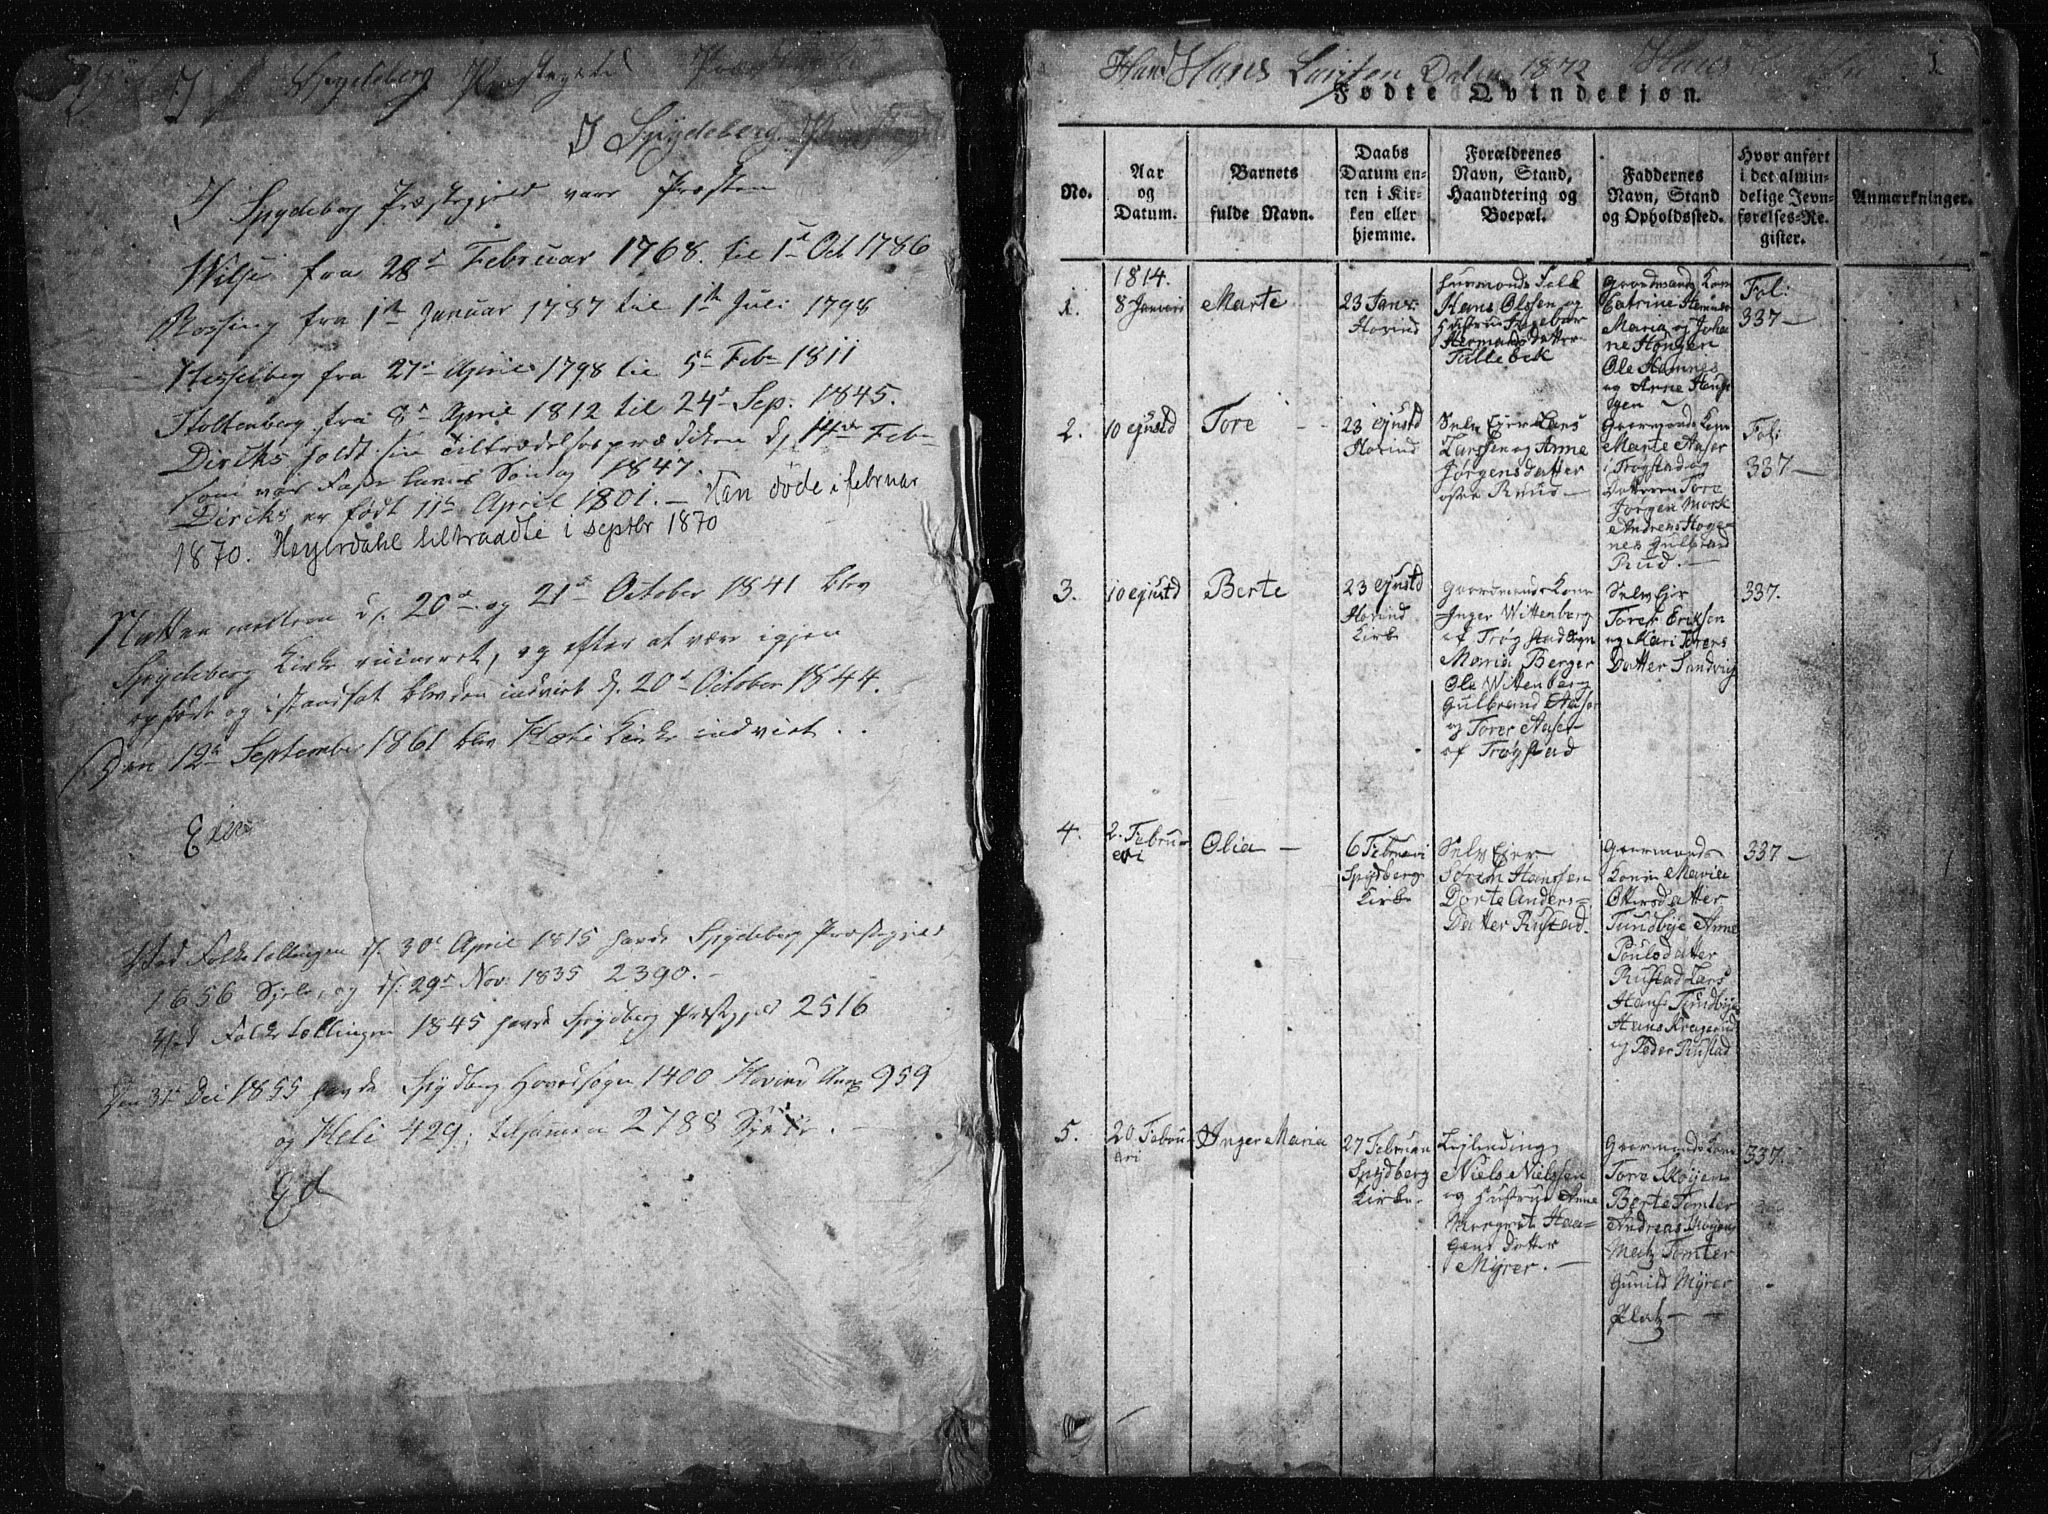 Spydeberg Præstegield
I Spydeberg
I Spydeberg Præstegjeld vare Præsten
Wilse fra 28de Februar 1768 til 1ste Oct 1786
Rossing fra 1ste Januar 1787 til 1ste Juli 1798
Hesselberg fra 27de April 1798 til 5te Feb 1811
Stoltenberg fra 8de April 1812 til 24de Sep. 1845.
Diriks holdt sin tiltrædelsesprædiken d. 14de Feb
som var Faste lavns Søndag 1847.
Diriks er født 11te April 1801. – Han døde i februar
1870. Heyerdahl tiltraadte i septbr 1870
Natten mellem d. 20de og 21de October 1841 blev
Spydeberg Kirke ruineret, og efter at være igjen
opført og istandsat blev den indviet d. 20de October 1844.
Den 12te September 1861 blev Heli Kirke indviet.
Ved Folketællingen d. 30te April 1815 havde Spydeberg Præstegjeld
1656 Sjele, og d. 29de Nov. 1835 2390.
Ved Folketællingen 1845 havde Spydberg Præstegjeld 2516
Den 31te Dec 1855 havde Spydberg Hovedsogn 1400 Hovind Anex 959
og Heli 429, tilsammen 2788 Sjele. –
Ed
Hans Lar sen Dalen 1872 Hans
1
Fødte Qvindekjøn.
No.
Aar
og
Datum.
Barnets
fulde Navn.
Daabs
Datum en-
ten i Kir-
ken eller
hjemme.
Forældrenes
Navn, Stand,
Haandtering og
Boepæl.
Faddernes
Navn, Stand
og Opholdssted.
Hvor anført
i det almin-
delige Jevn-
førelses-Re-
gister.
Anmærkninger.
1.
1814.
8 Januari
Marte –
23 Janr
Hovind
Huusmands Folk
Hans Olssen og
Hustrue Ingebor
Hermansdatter
Tallebek
Gaardmands Kone
Catrine
Maria og Joha
ne Hongen
Ole Hamnes
og Anne Hau
gen
Fol:
337 –
2.
10 ejustd
Tore – –
23 ejustd
Hovind
Selv Ejer Lars
Larssen og Anne
Jørgensdatter
østre Ruud –
Gaarmands Kone
Marte Aaser
i Trøgstad og
Datteren Tore
Jørgen Mork
Andreas Hoge
nes Gulbrand
Rud. –
Fol:
337 –
3.
10 ejustd
Berte
23 ejustd
Hovind
Kirke
Gaardmands Kone
Inger Wittenberg
af Trøgstad Sogn
Maria Berger
Ole Wittenberg
Gulbrand Aaser
og Torer Aaser
af Trøgstad
Selv Ejer
Torer Eriksen
og Mari Torers
Datter Sandvig
337.
4.
2. Februari
Olia –
6 Februari
Spydberg
Kirke
Selv Ejer
Søren Hanssen
Dorte Anders-
Datter Rustad.
Gaarmands
Kone Marie
Ottersdatter
Tundbye Anne
Poulsdatter
Rustad Lars
Hans Tundbye
Hans Kragerud
og Peder Rustad
337 –
5.
20 Februari
Inger Maria
27 Februari
Spydberg
Kirke.
Lejlending
Niels Nielssen
og Hustrue Anne
Margret Haa-
gens datter
Myrer. –
Gaarmands Kone
Tore Skøyen
Berte Tomter
Andreas Skøyen
Matz Tomter
Gunild Myrer
Platz –
337.